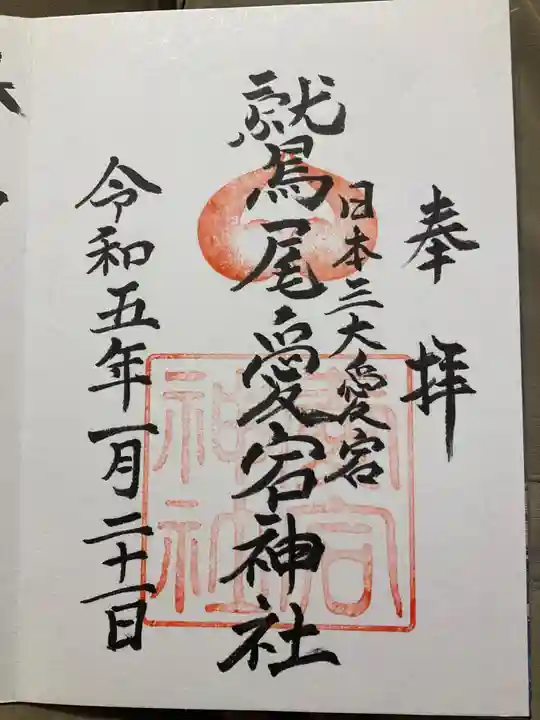 奉拝
日本三大愛宕
鷲尾愛宕神社
令和五年一月二十一日
愛宕
神社